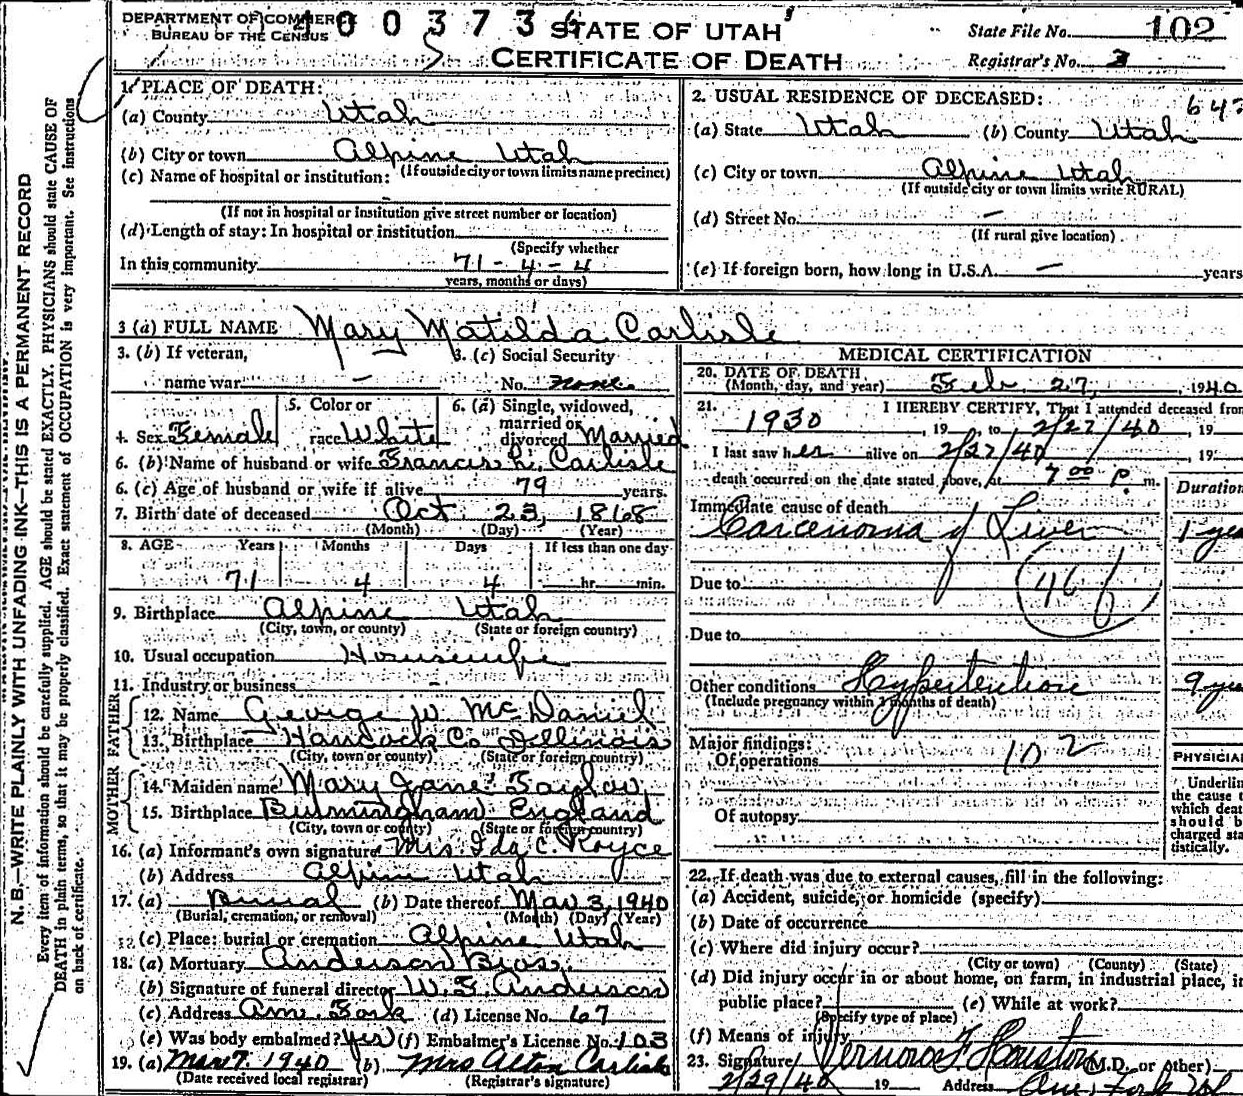 DEPARTMENT OF COMMERCE
BUREAU OF THE CENSUS
400373
STATE OF UTAH
CERTIFICATE OF DEATH
State File No. 102
Registrar's No. 3
1. PLACE OF DEATH:
(a) County Utah
(b) City or town Alpine Utah
(If outside city or town limits name precinct)
(c) Name of hospital or institution: -
(If not in hospital or institution give street number or location)
(d) Length of stay: In hospital or institution
(Specify whether
In this community 71-4-4
years, months or days)
2. USUAL RESIDENCE OF DECEASED:
(a) State Utah (b) County Utah
(c) City or town Alpine Utah
(If outside city or town limits write RURAL)
(d) Street No. —
(If rural give location)
(e) If foreign born, how long in U.S.A. — years
3 (a) FULL NAME Mary Matilda Carlisle
3. (b) If veteran, name war —
3. (c) Social Security No. none
4. Sex Female
5. Color or race White
6. (a) Single, widowed, married or divorced Married
6. (b) Name of husband or wife Francis L. Carlisle
6. (c) Age of husband or wife if alive 79 years.
7. Birth date of deceased Oct. 23, 1868
(Month) (Day) (Year)
8. AGE Years Months Days If less than one day
71 4 4 hr. min.
9. Birthplace Alpine Utah
(City, town, or county) (State or foreign country)
10. Usual occupation Housewife
11. Industry or business -
FATHER
12. Name George W McDaniel
13. Birthplace Hancock Co Illinois
(City, town or county) (State or foreign country)
MOTHER
14. Maiden name Mary Jane Taylor
15. Birthplace Birmingham England
(City, town or county) (State or foreign country)
16. (a) Informant's own signature Mrs. Ida C. Royce
(b) Address Alpine Utah
17. (a) Burial (b) Date thereof Mar 3, 1940
(Burial, cremation, or removal) (Month) (Day) (Year)
(c) Place: burial or cremation Alpine Utah
18. (a) Mortuary Anderson Bros.
(b) Signature of funeral director W. F. Anderson
(c) Address Am. Fork (d) License No. 67
(e) Was body embalmed? Yes (f) Embalmer's License No. 103
19. (a) Mar 7. 1940 (b) Mrs Alton Carlisle
(Date received local registrar) (Registrar's signature)
MEDICAL CERTIFICATION
20. DATE OF DEATH
(Month, day, and year) Feb. 27, 1940
21. I HEREBY CERTIFY, That I attended deceased from
1930, 19 to 2/27/40, 19
I last saw her alive on 2/27/40, 19
death occurred on the date stated above, at 7 00 P. m.
Duration
Immediate cause of death
Carcenoma of Liver 1 yea
Due to 46 f
Due to
Other conditions Hypertention 9 yea
(Include pregnancy within 3 months of death)
Major findings:
Of operations 102
Of autopsy
PHYSICIAN
Underlin
the cause t
which deat
should b
charged sta
tistically.
22. If death was due to external causes, fill in the following:
(a) Accident, suicide, or homicide (specify)
(b) Date of occurrence
(c) Where did injury occur?
(City or town) (County) (State)
(d) Did injury occur in or about home, on farm, in industrial place, in
public place? (e) While at work?
(Specify type of place)
(f) Means of injury
23. Signature Vernon F Houston (M.D. or other)
2/29/40 19 Address Am. Fork Ut
N. B.—WRITE PLAINLY WITH UNFADING INK—THIS IS A PERMANENT RECORD
Every item of information should be carefully supplied. AGE should be stated EXACTLY. PHYSICIANS should state CAUSE OF
DEATH in plain terms, so that it may be properly classified. Exact statement of OCCUPATION is very important. See instructions
on back of certificate.